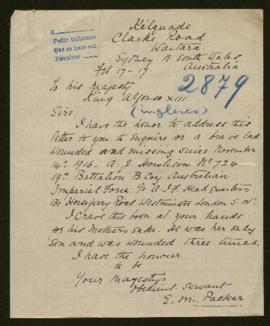 Kilquade
Clarke Road
Waitara
Sydney N. South Wales
Australia
Feb 17-17.
2879
To his Majesty
King Alfonso XIII
(ingleses)
Sire,
I have the honor to address this
letter to you to Enquire of a brave lad
wounded and missing since November
14th 1916 - A. J. Harrison No 724
19th Battalion B. Coy Australian
Imperial Force To A.I.F. Headquarters
130 Horseferry Road Westminster London S.W.
I Crave this boon at your hands
for his Mothers sake. It was her only
Son and was wounded three times.
I have the honour
to be
Your Majestys
Obedient Servant
E. M. Packer